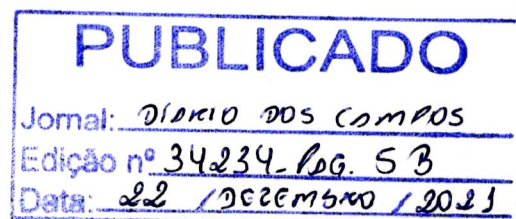 PUBLICADO
Jornal: DIÁRIO DOS CAMPOS
Edição nº 34234-PÁG. 5B
Data: 22 / DEZEMBRO / 2021